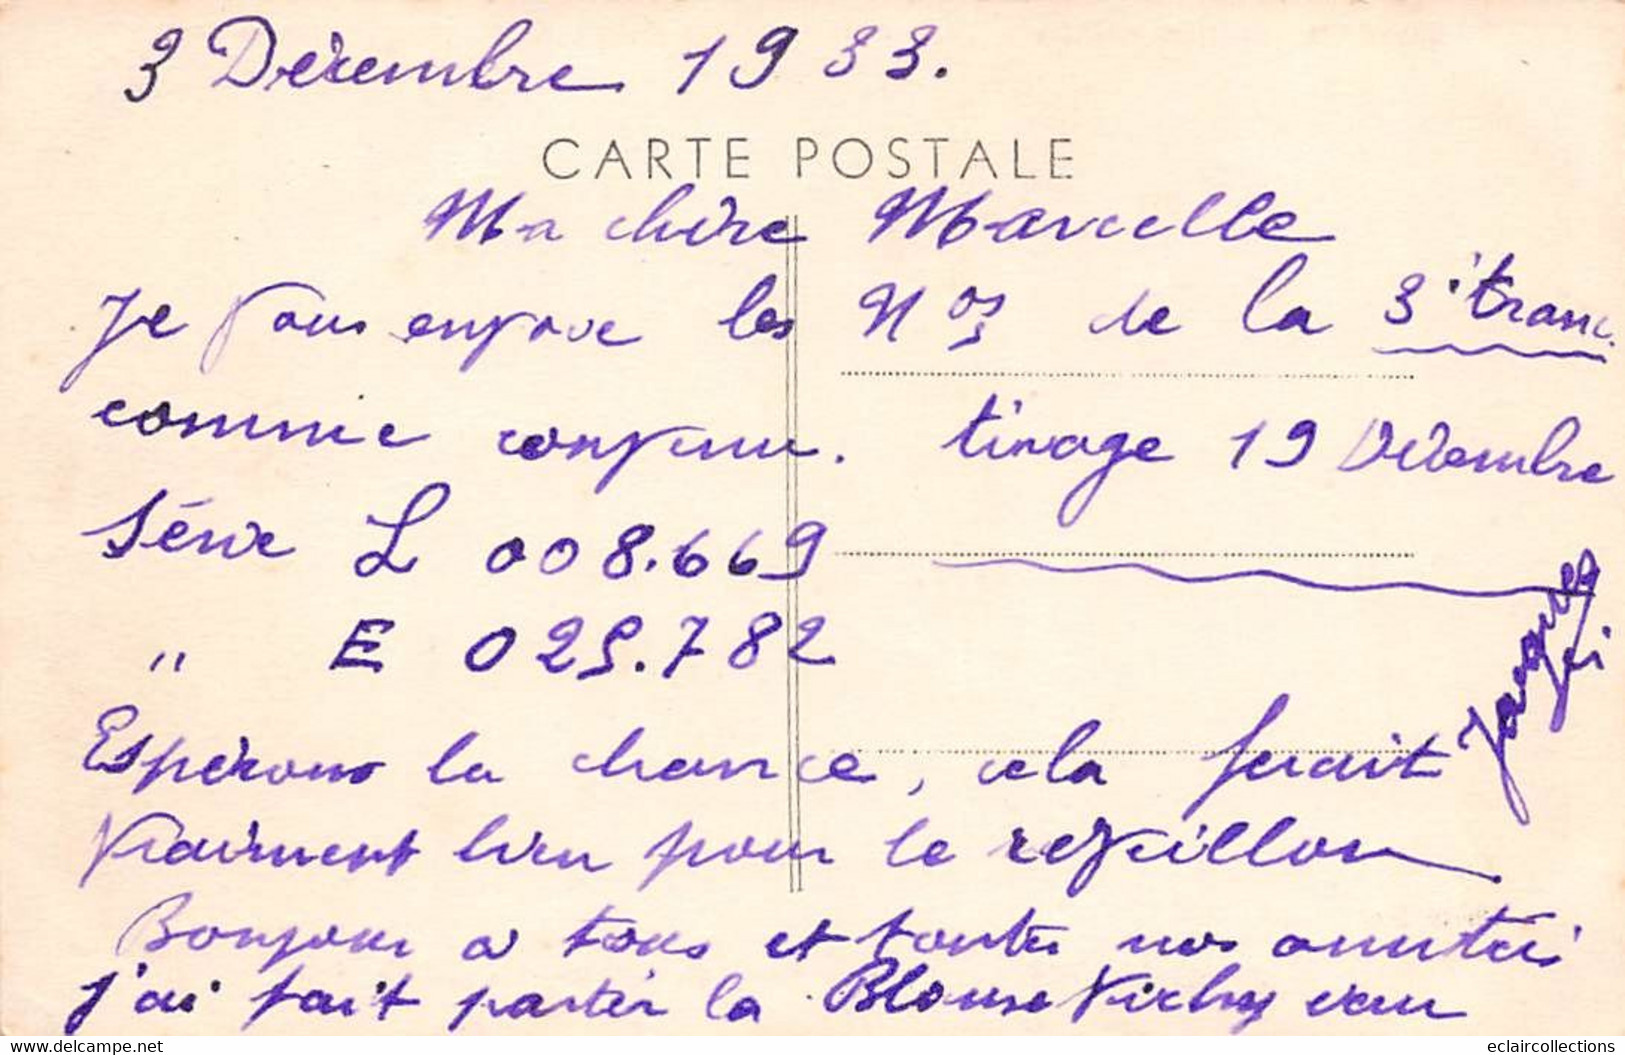 3 Décembre 1933.
CARTE POSTALE
Ma chère Marcelle
Je vous envoie les Nos de la 3e tranc.
comme convenu. tirage 19 Décembre
Série L 008.669
" E 025.782
Espérons la chance, cela ferait
vraiment bien pour le réveillon
Bonjour a tous et toutes nos amitiés
j'ai fait partir la Blouse Vichy
Jacques
delcampe.net
eclaircollections